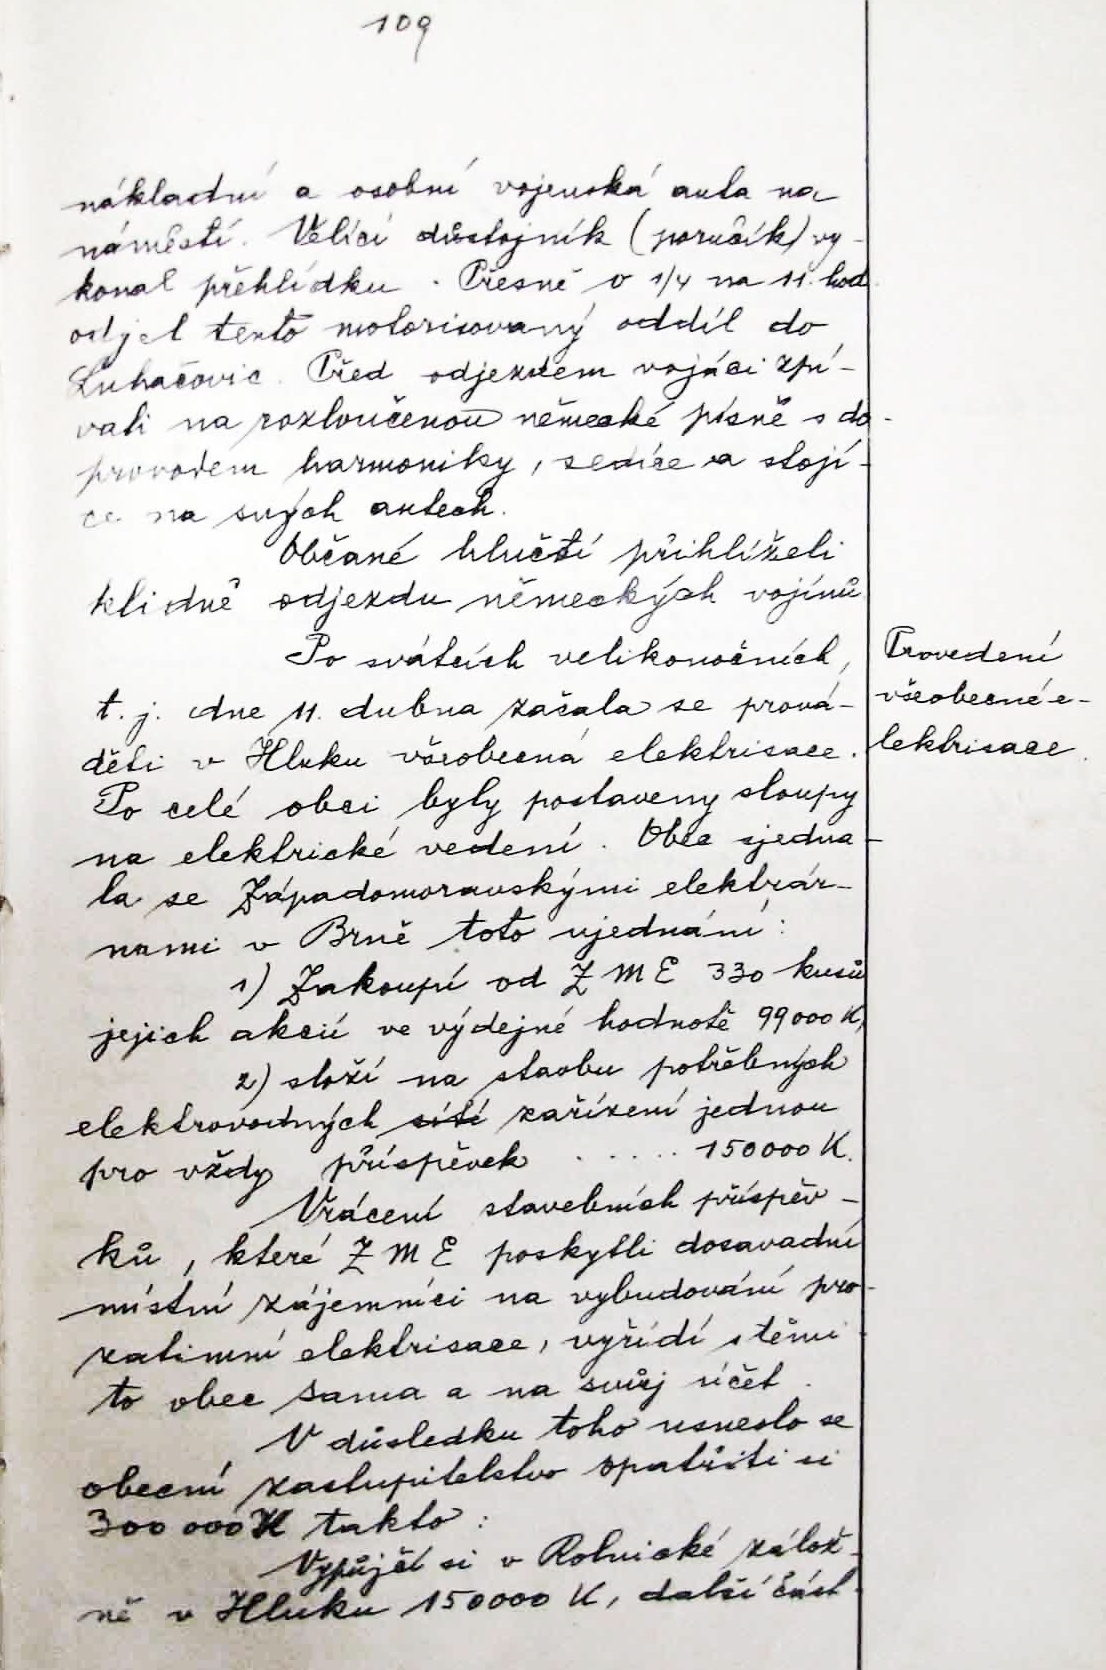 109
nákladní a osobní vojenská auta na
náměstí. Velící důstojník (poručík) vy-
konal přehlídku. Přesně v 1/4 na 11. hod.
odjel tento motorisovaný oddíl do
Luhačovic. Před odjezdem vojáci zpí-
vali na rozloučenou německé písně s do-
provodem harmoniky, sedíce a stojí-
ce na svých autech.
Občané hlučtí přihlíželi
klidně odjezdu německých vojínů
Po svátcích velikonočních,
t. j. dne 11. dubna začala se prová-
děti v Hluku všeobecná elektrisace.
Po celé obci byly postaveny sloupy
na elektrické vedení. Obec sjedna-
la se Západomoravskými elektrár-
nami v Brně toto ujednání:
1) Zakoupí od Z M E 330 kusů
jejich akcií ve výdejné hodnotě 99000 K,
2) složí na stavbu potřebných
elektrovodných sítí zařízení jednou
pro vždy příspěvek ..... 150000 K.
Vrácení stavebních příspěv-
ků, které Z M E poskytli dosavadní
místní zájemníci na vybudování pro-
zatimní elektrisace, vyřídí s těmi
to obec sama a na svůj účet.
V důsledku toho usneslo se
obecní zastupitelstvo opatřiti si
300 000 K takto:
Vypůjčí si v Rolnické zálož-
ně v Hluku 150000 K, další část
Provedení
všeobecné e-
lektrisace.